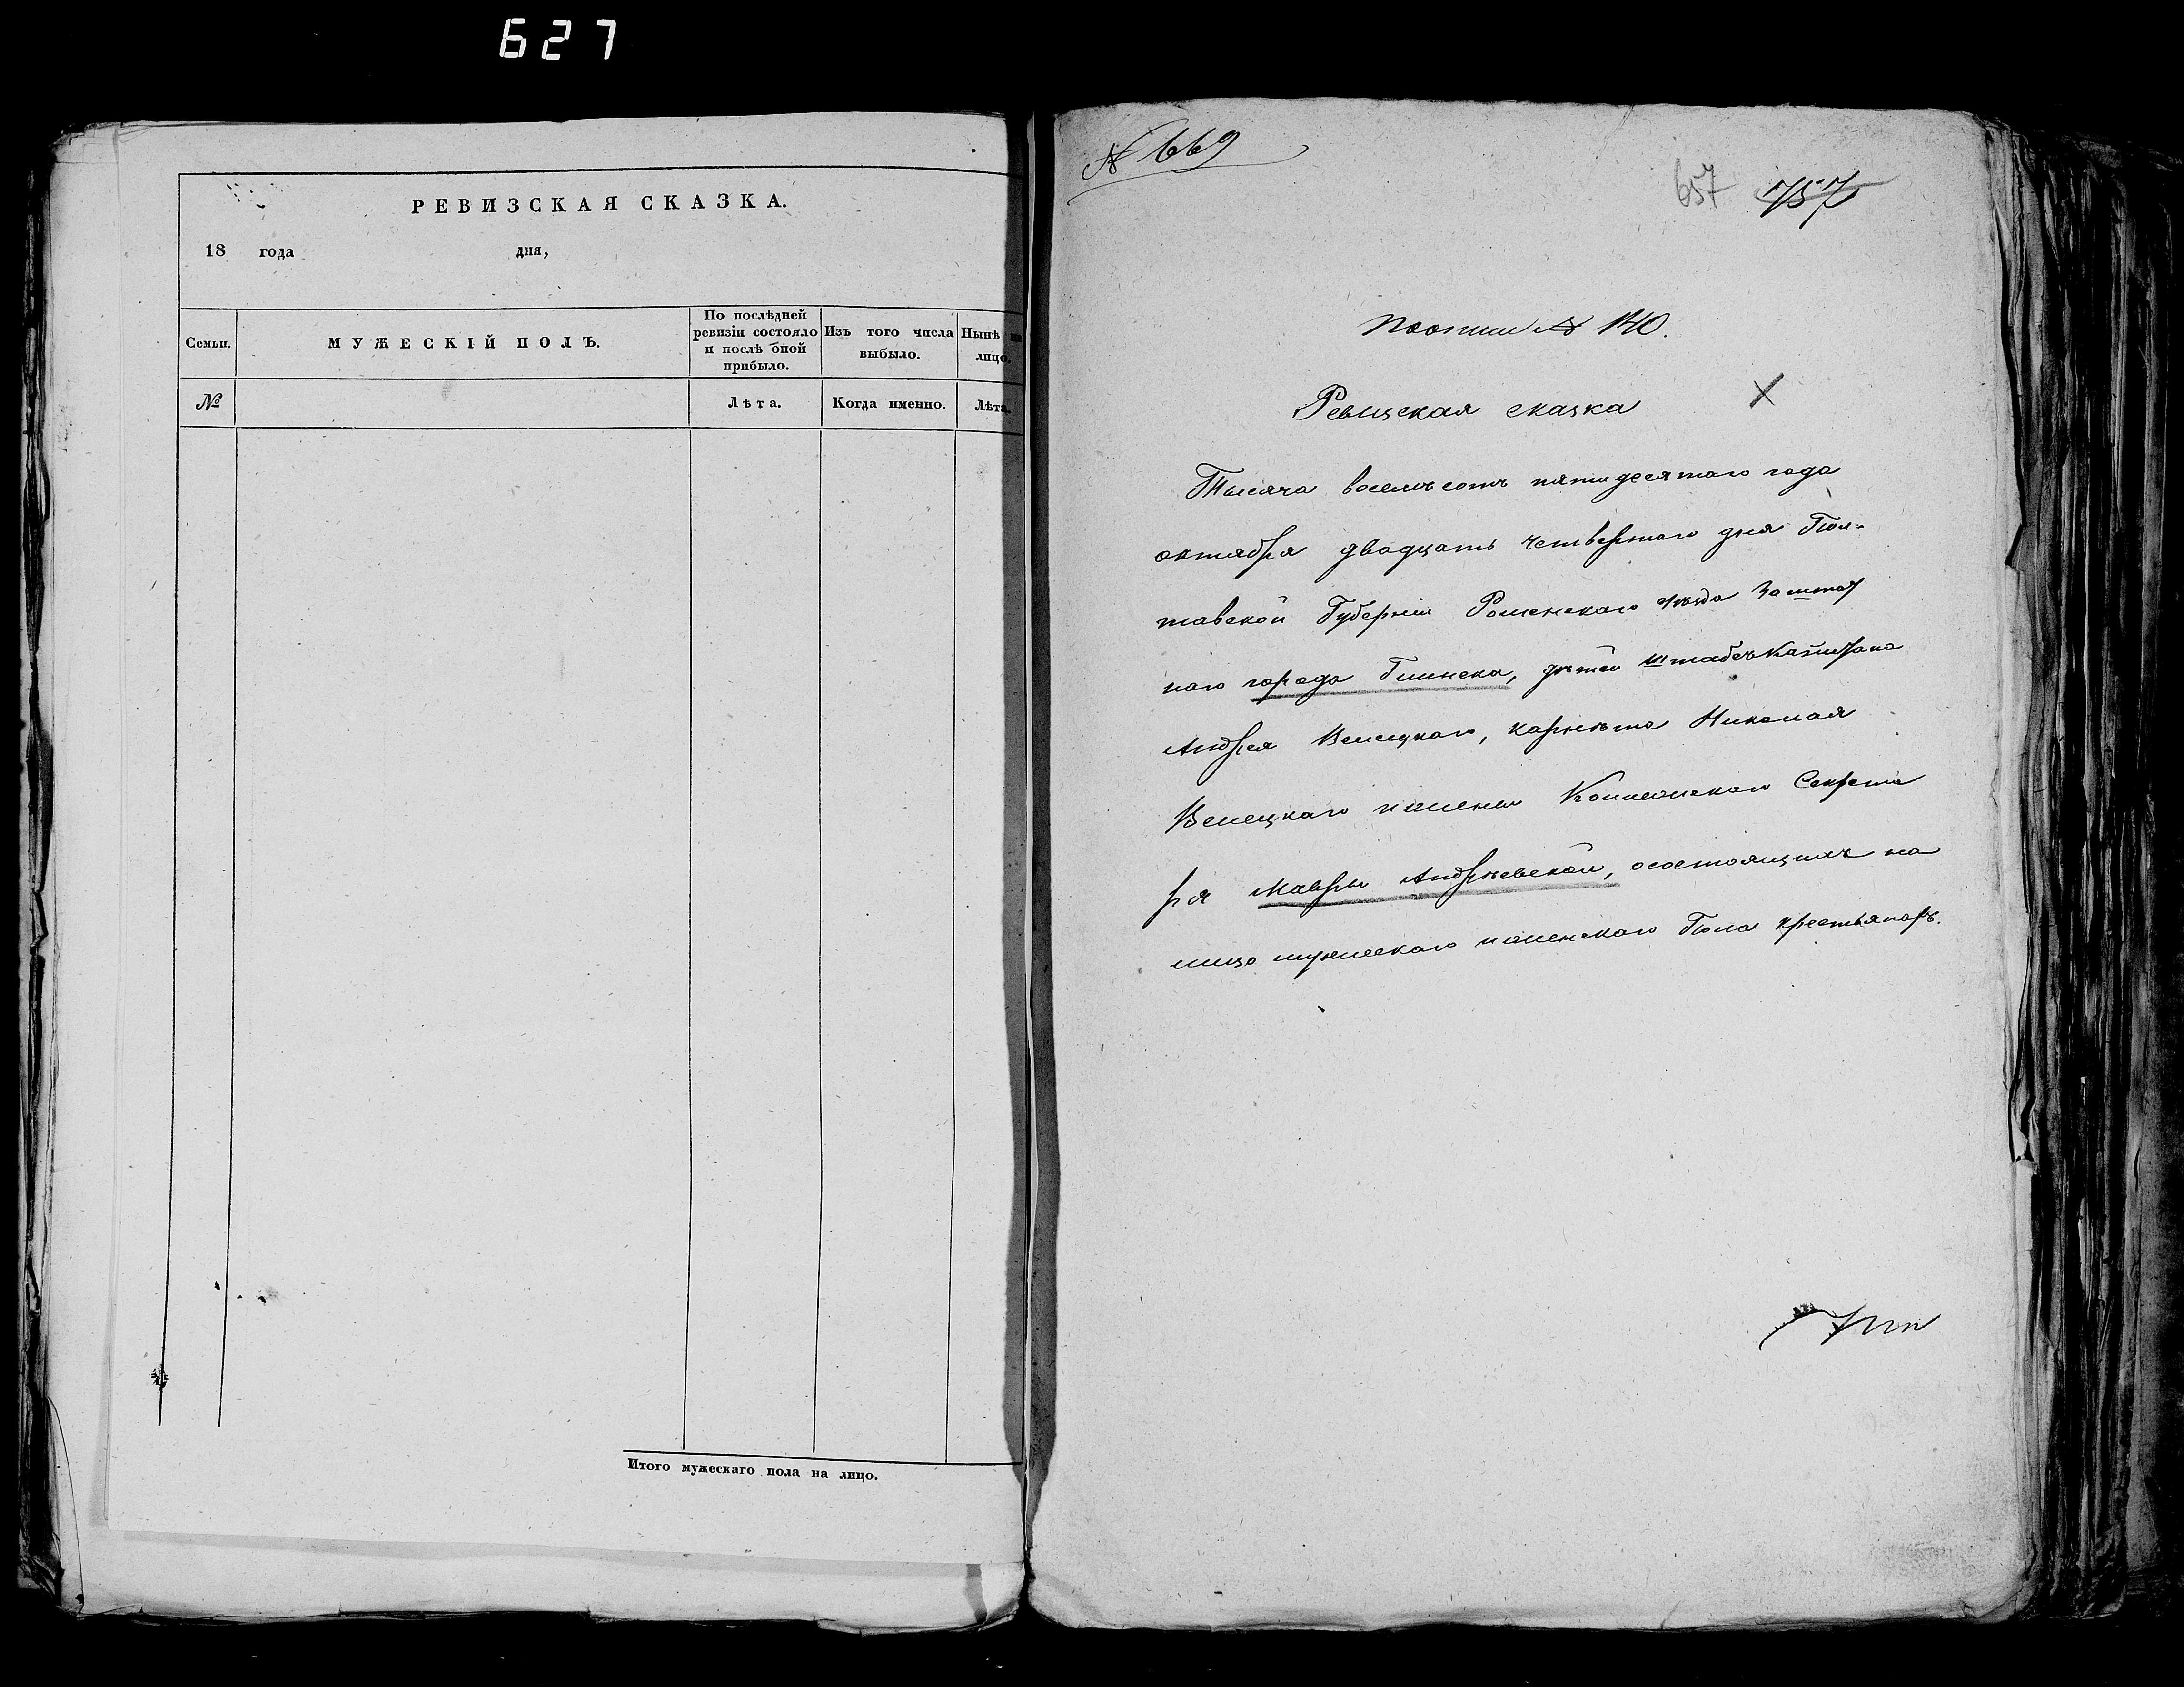 627
РЕВИЗСКАЯ СКАЗКА.
18 года дня,
Семьи.
МУЖЕСКІЙ ПОЛЪ.
По послѣдней
ревизіи состояло
и послѣ оной
прибыло.
Изъ того числа
выбыло.
Нынѣ на
лицо.
№
Лѣта.
Когда именно.
Лѣта.
Итого мужескаго пола на лицо.
№ 669
657 757
№ 140.
Ревизская сказка
Тысяча восемъсотъ пятидесятаго года
октября двадцать четвертаго дня Пол-
тавской Губерніи Роменскаго уѣзда Заштат
наго города Глинска, дѣтей штабсъ Капитана
Андрея Велецкаго, карнета Николая
Велецкаго и жены Колежскаго Секрета
ря Мавры Андрѣевской, осостоящихъ на
лицо мужескаго и женскаго Пола крестьянахъ.